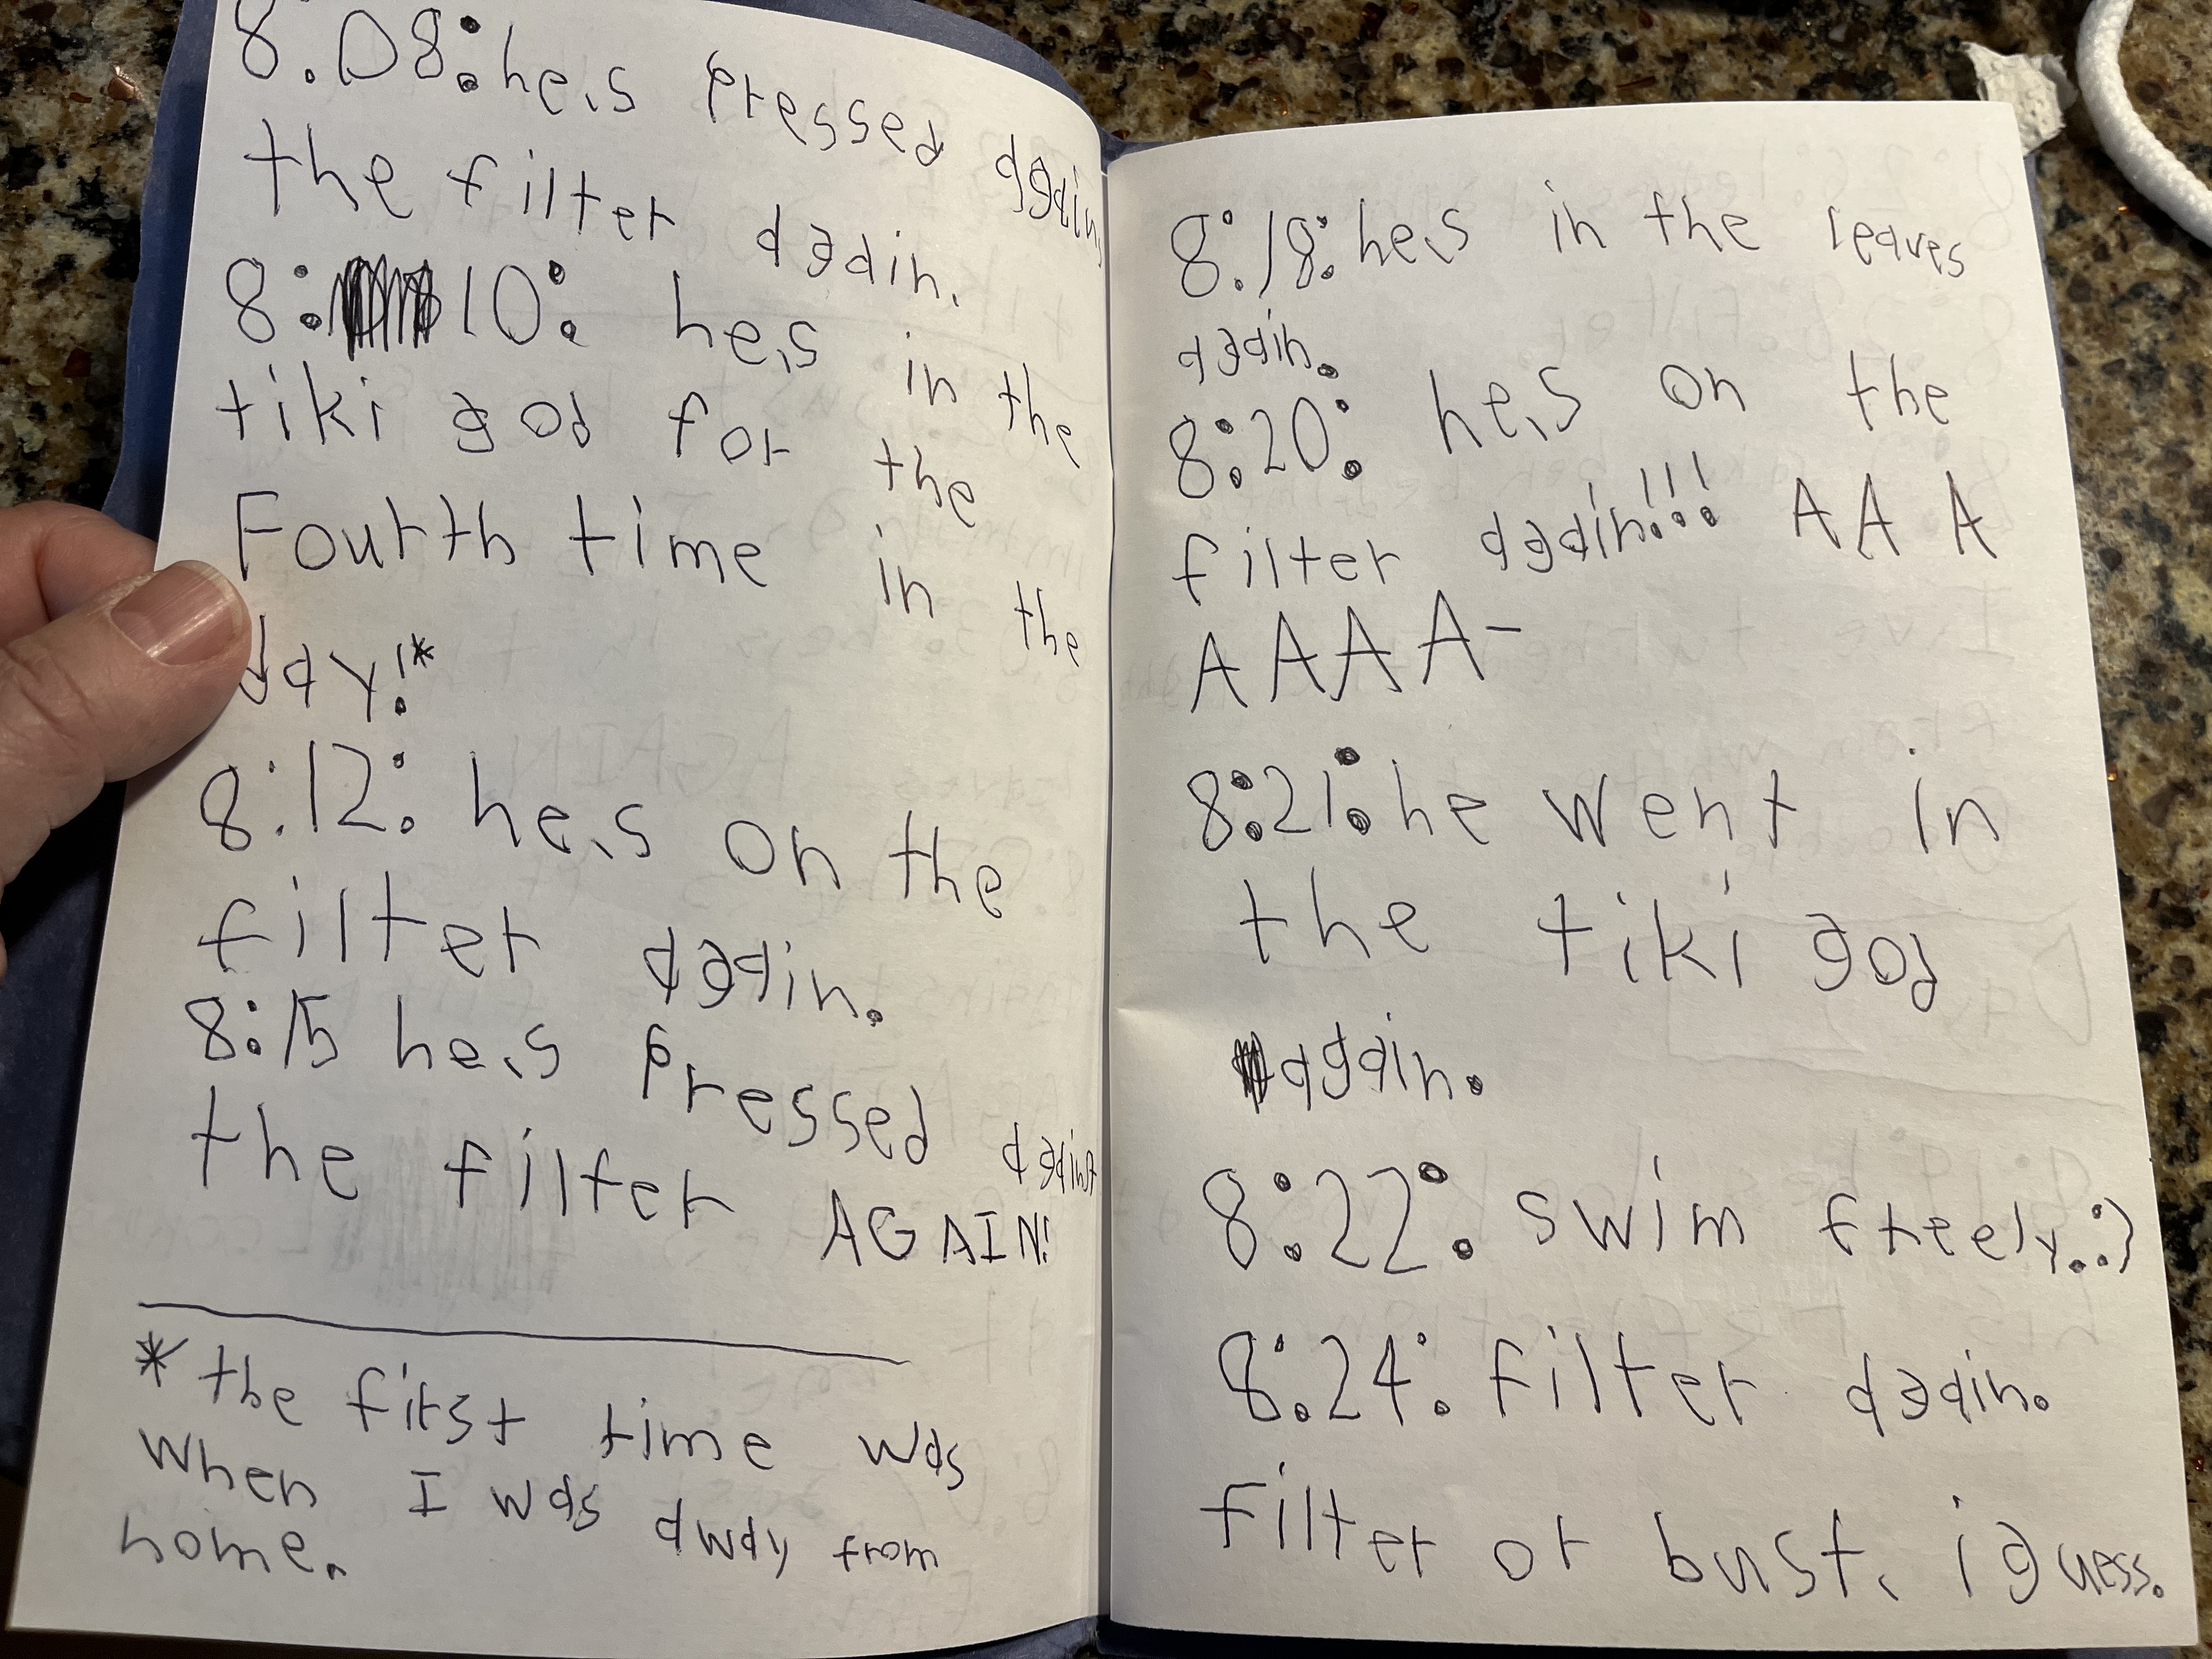 8:08: he,s pressed again
the filter again.
8: 10: he,s in the
tiki god for the
Fourth time in the
day!*
8:12: he,s on the
filter again.
8:15 he,s pressed against
the filter AGAIN!
* the first time was
when I was away from
home.
8:18: he,s in the leaves
again.
8:20: he,s on the
filter again!!! A A A
A A A A-
8:21: he went in
the tiki god
again.
8:22: swim freely. :)
8:24: filter again.
filter or bust, i guess.